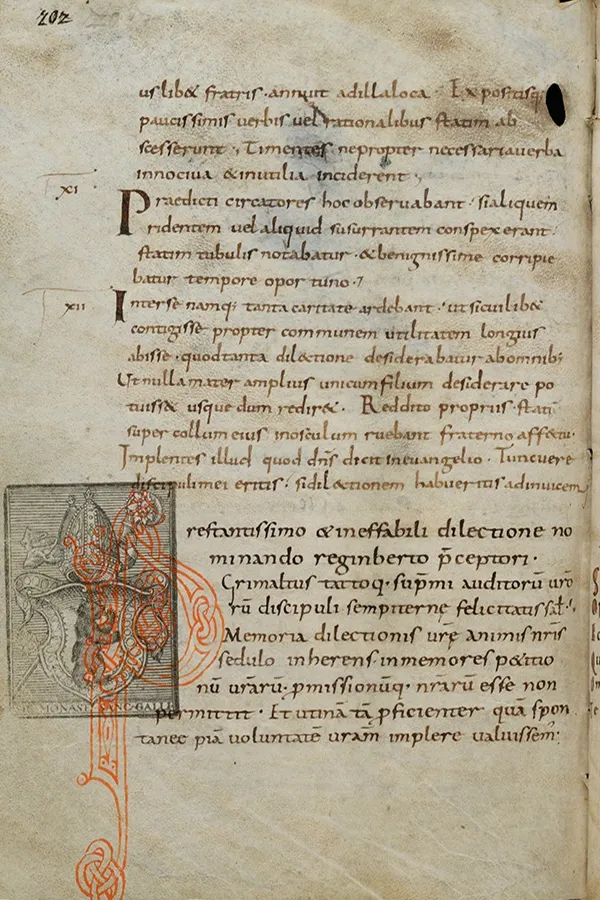 202
us lib& fratris · annuit ad illa loca · Expositisq;
paucissimis verbis vel rationalibus statim ab
scesserunt · Timentes ne propter necessaria verba
innociva & inutilia inciderent ·
XI
Praedicti circatores hoc observabant · si aliquem
ridentem vel aliquid susurrantem conspexerant ·
statim tubulis notabatur · & benignissime corripie
batur tempore oportuno ·
XII
Inter se namq; tanta caritate ardebant · ut si cui lib&
contigisse propter communem utilitatem longius
abisse · quod tanta dilectione desiderabatur ab omnib;
Ut nulla mater amplius unicum filium desiderare po
tuiss& usque dum redir& · Reddito propriis · stati
super collum eius in osculum ruebant fraterno affectu ·
Implentes illud quod dns dicit in evangelio · Tunc vere
discipuli mei eritis · si dilectionem habueritis adinvicem
Prestantissimo & ineffabili dilectione no
minando reginberto p̄ceptori ·
Grimaltus tattoq · sup̄mi auditorū vr̄o
rū discipuli sempiternę felicitatis sāl ·
Memoria dilectionis vrę animis nr̄is
sedulo inherens · inmemores p&itio
nū vr̄arū · p̄missionūq · nr̄arū esse non
permittit · Et utinā tā p̄ficienter quā spon
tanee piā voluntatē vr̄am implere valuissem ·
MONAST SANC GALLI